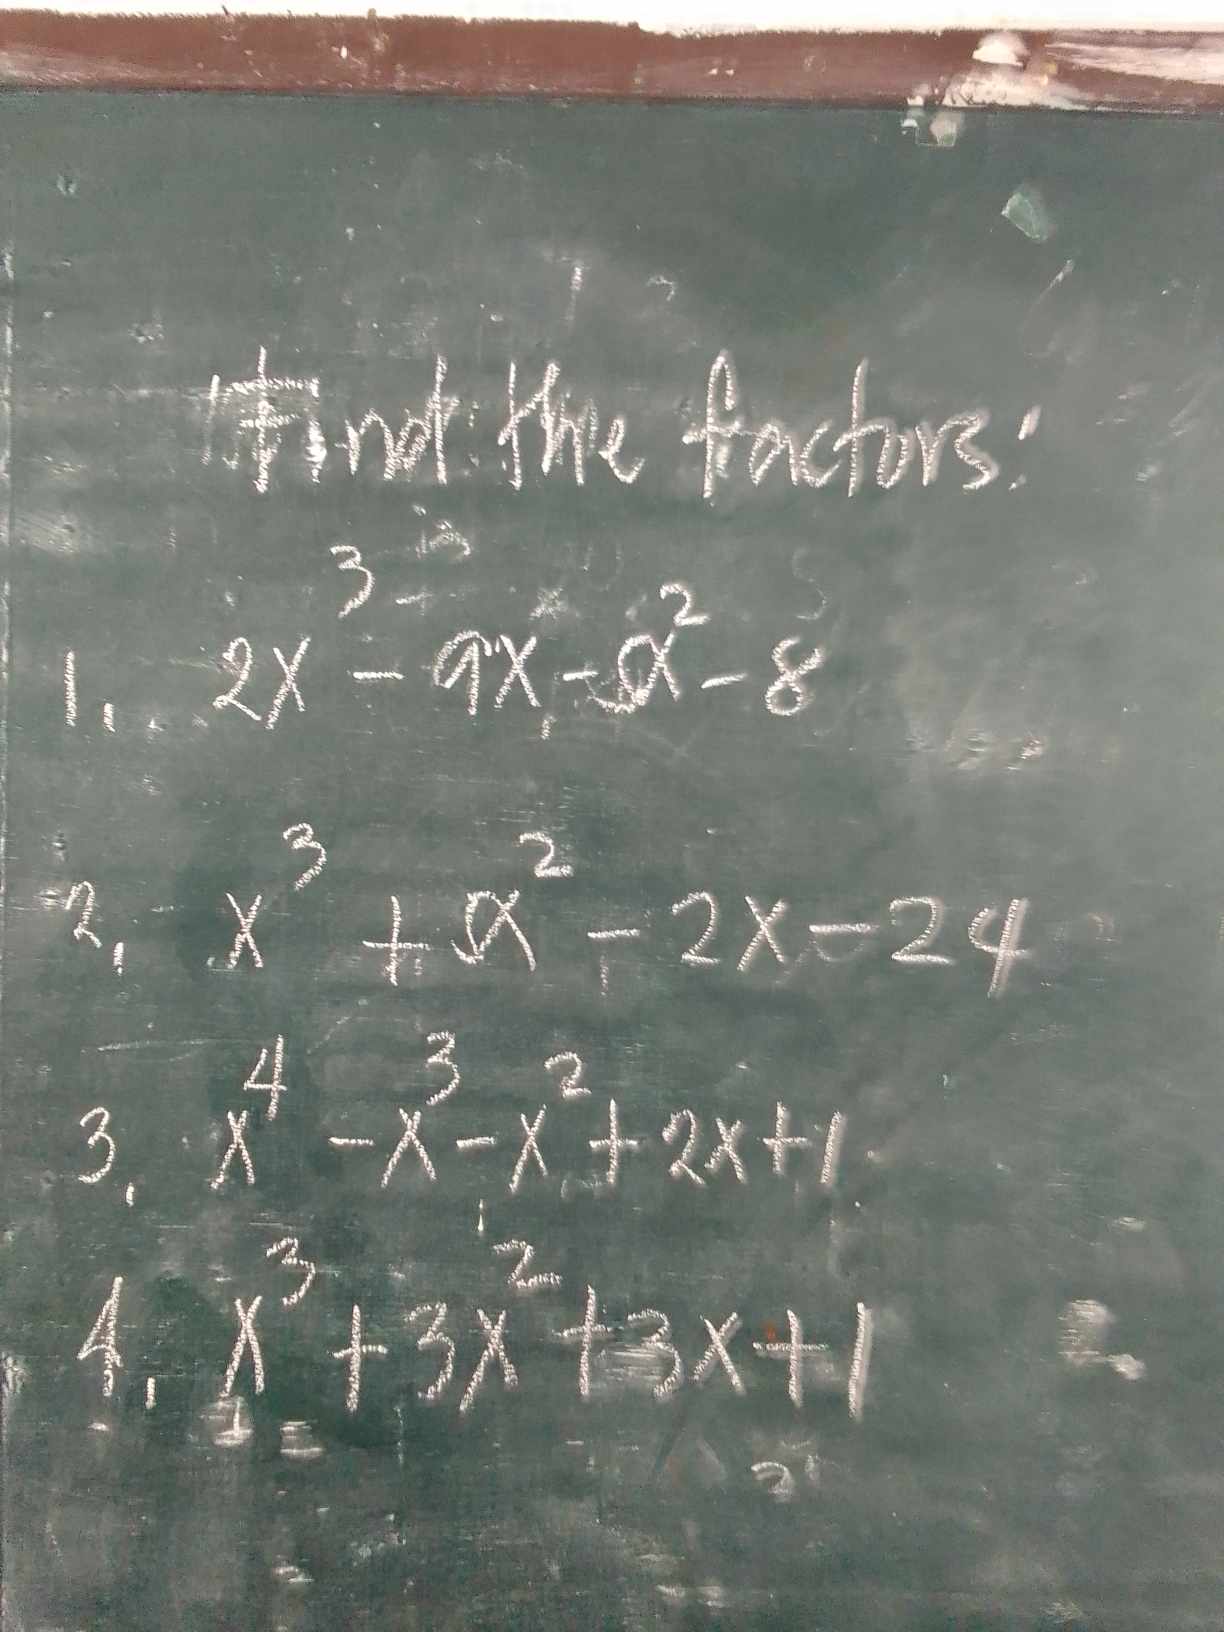 Find the factors:
1. 2x³ - 9x - x² - 8
2. x³ + x² - 2x - 24
3. x⁴ - x³ - x² + 2x + 1
4. x³ + 3x² + 3x + 1